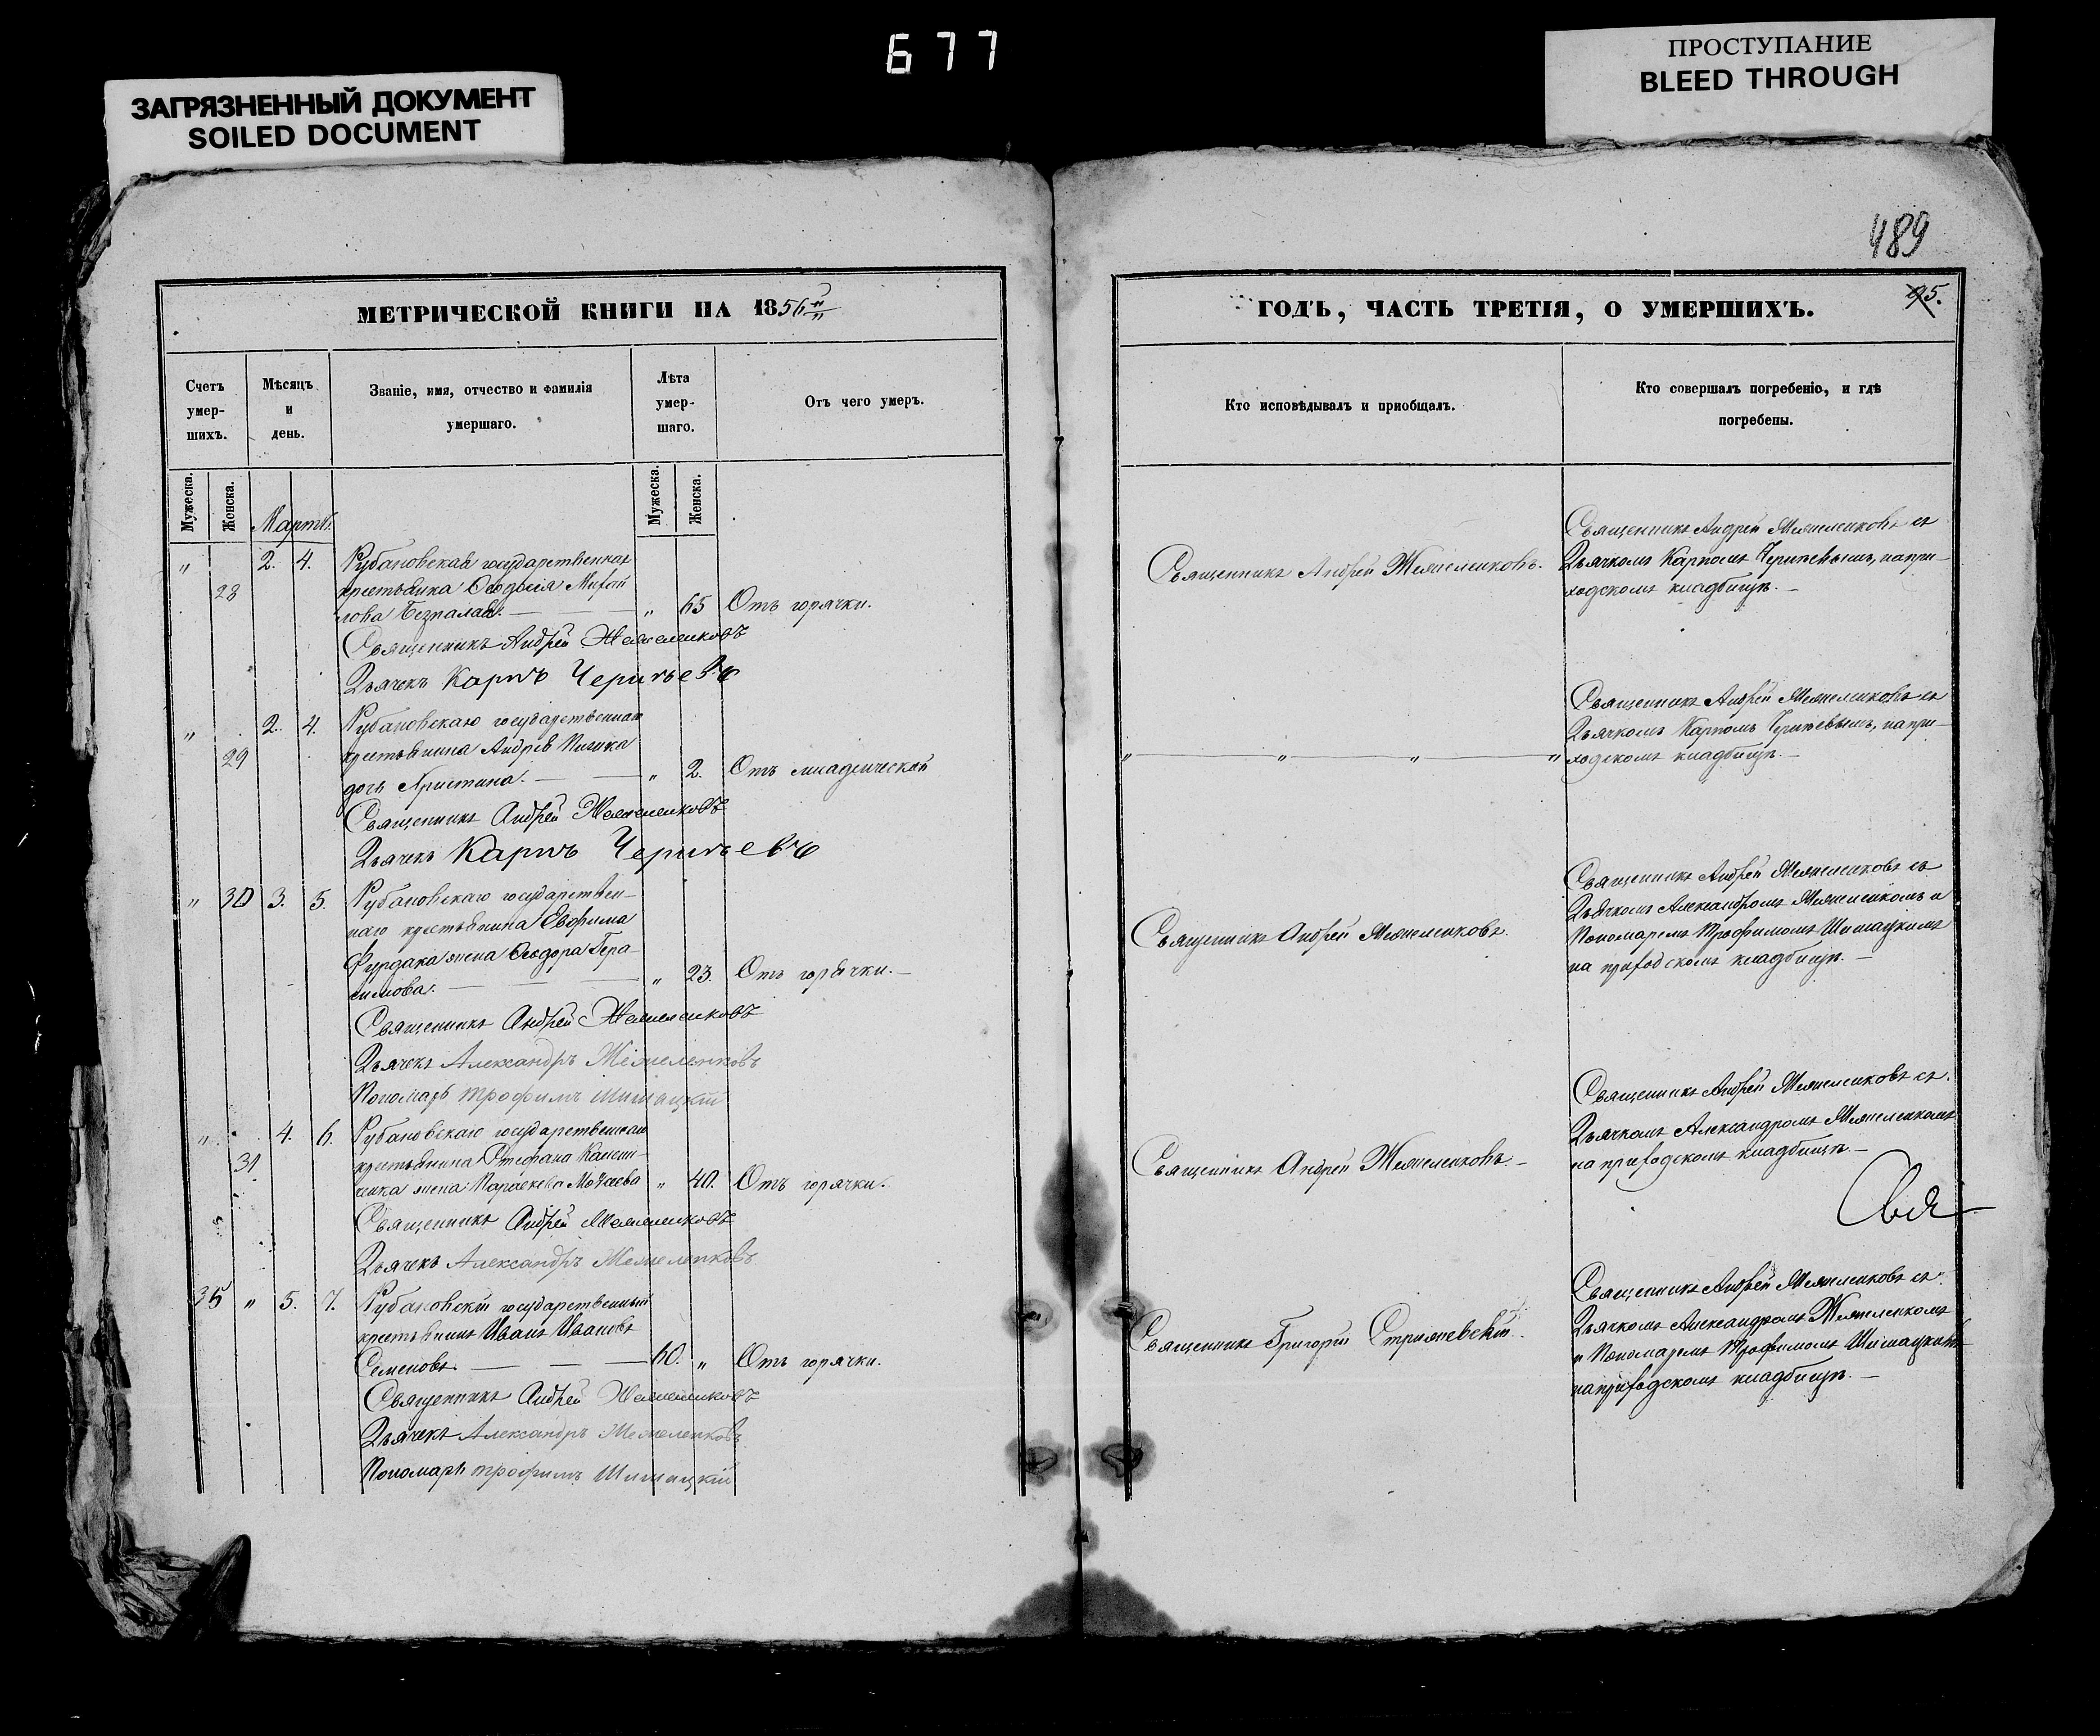 677
ЗАГРЯЗНЕННЫЙ ДОКУМЕНТ
SOILED DOCUMENT
ПРОСТУПАНИЕ
BLEED THROUGH
489
МЕТРИЧЕСКОЙ КНИГИ НА 1856й
Счетъ умер-шихъ.
Мѣсяцъ и день.
Званіе, имя, отчество и фамилія умершаго.
Лѣта умер-шаго.
Отъ чего умеръ.
Мужеска.
Женска.
Мартъ.
Мужеска.
Женска.
„ 2. 4. Рубановская государственная
28 крестьянка Ѳеодосія
лова Безпалая. — — „ 65 Отъ горячки.
Священникъ Андрей Жемеленковъ
Дьячекъ Карпъ
„ 2. 4. Рубановскаго государственнаго
29 крестьянина Андрея
дочь Христина. — — „ 2. Отъ младенческой
Священникъ Андрей Жемеленковъ
Дьячекъ Карпъ
„ 30 3. 5. Рубановскаго государствен-
наго крестьянина Евфима
Фурдака жена Ѳеодора Гера-
симова. — — — „ 23. Отъ горячки. —
Священникъ Андрей Жемеленковъ
Дьячекъ Александръ Жемеленковъ
Пономарь Трофимъ Шишацкій
„ 4. 6. Рубановскаго государственнаго
31 крестьянина Стефана
жена Параскева „ 40. Отъ горячки.
Священникъ Андрей Жемеленковъ
Дьячекъ Александръ Жемеленковъ
35 „ 5. 7. Рубановскій государственный
крестьянинъ Иванъ Ивановъ
Семеновъ. — — — 60. „ Отъ горячки.
Священникъ Андрей Жемеленковъ
Дьячекъ Александръ Жемеленковъ
Пономарь Трофимъ Шишацкій
ГОДЪ, ЧАСТЬ ТРЕТІЯ, О УМЕРШИХЪ.
95.
Кто исповѣдывалъ и пріобщалъ.
Кто совершалъ погребеніе, и гдѣ
погребены.
Священникъ Андрей Жемеленковъ.
Священникъ Андрей Жемеленковъ съ
Дьячкомъ Карпомъ на при-
ходскомъ кладбищѣ. —
„ — „ — „ — „
Священникъ Андрей Жемеленковъ съ
Дьячкомъ Карпомъ на при-
ходскомъ кладбищѣ. —
Священникъ Андрей Жемеленковъ.
Священникъ Андрей Жемеленковъ съ
Дьячкомъ Александромъ Жемеленкомъ и
Пономаремъ Трофимомъ Шишацкимъ
на приходскомъ кладбищѣ. —
Священникъ Андрей Жемеленковъ. —
Священникъ Андрей Жемеленковъ съ
Дьячкомъ Александромъ Жемеленкомъ
на приходскомъ кладбищѣ. —
Свя
Священникъ Григорій Стрижевскій.
Священникъ Андрей Жемеленковъ съ
Дьячкомъ Александромъ Жемеленкомъ
и Пономаремъ Трофимомъ Шишацкимъ
на приходскомъ кладбищѣ. —